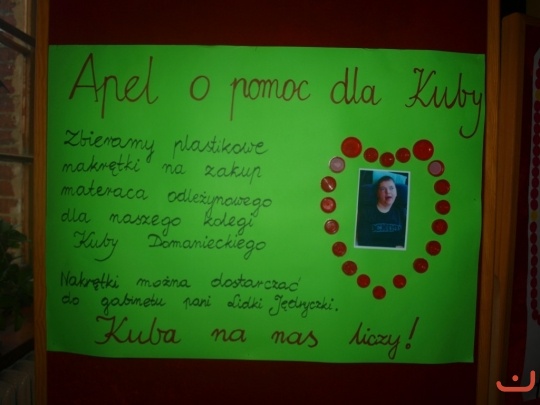 Apel o pomoc dla Kuby
Zbieramy plastikowe
nakrętki na zakup
materaca odleżynowego
dla naszego kolegi
Kuby Domanieckiego
Nakrętki można dostarczać
do gabinetu pani Lidki Jędryczki.
Kuba na nas liczy!